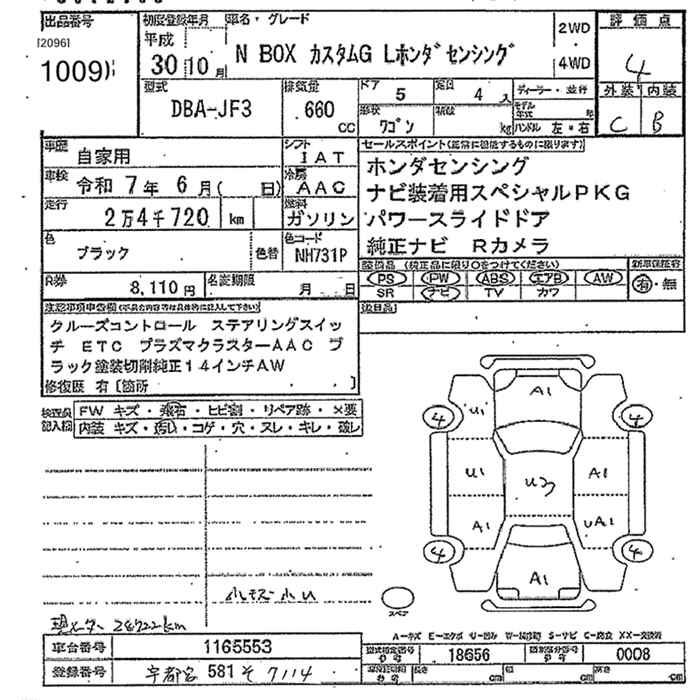 出品番号 初度登録年月 車名・グレード 2WD 評価点
[2096]
10091 平成 30 10月 N BOX カスタムG Lホンダセンシング 4WD 4
型式 排気量 ドア 5 定員 4 人 ディーラー・並行 外装 内装
DBA-JF3 660 CC 形状 ワゴン 積載 kg モデル年式 年 C B
ハンドル 左・右
車歴 自家用 シフト IAT セールスポイント(正常に機能するものに限ります)
車検 令和 7年 6月( 日) 冷房 AAC ホンダセンシング
走行 2万4千720 km 燃料 ガソリン ナビ装着用スペシャルPKG
パワースライドドア
色 ブラック 色替 色コード NH731P 純正ナビ Rカメラ
R券 8,110円 名変期限 月 日 装備品 (純正品に限り○をつけてください) 新車保証書
PS PW ABS エアB AW 有・無
SR ナビ TV カワ
注意事項申告欄 後日品
クルーズコントロール ステアリングスイッ
チ ETC プラズマクラスターAAC ブ
ラック塗装切削純正14インチAW
修復歴 有〔箇所 〕
検査員記入欄 FW キズ・飛石・ヒビ割・リペア跡・×要
内装 キズ・汚れ・コゲ・穴・スレ・キレ・破レ
A1
U1
4 4
U1 U3 A1
A1 UA1
4 4
A1
スペア
現メーター 24722km
A-キズ E-エクボ U-凹み W-補修跡 S-サビ C-腐食 XX-交換済
車台番号 1165553 型式指定番号 18656 類別区分番号 0008
登録番号 宇都宮 581 そ 7114 長さ cm 幅 cm 高さ cm